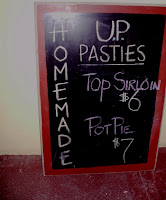 HOMEMADE
U.P.
PASTIES
TOP SIRLOIN
$6
POT PIE
$7